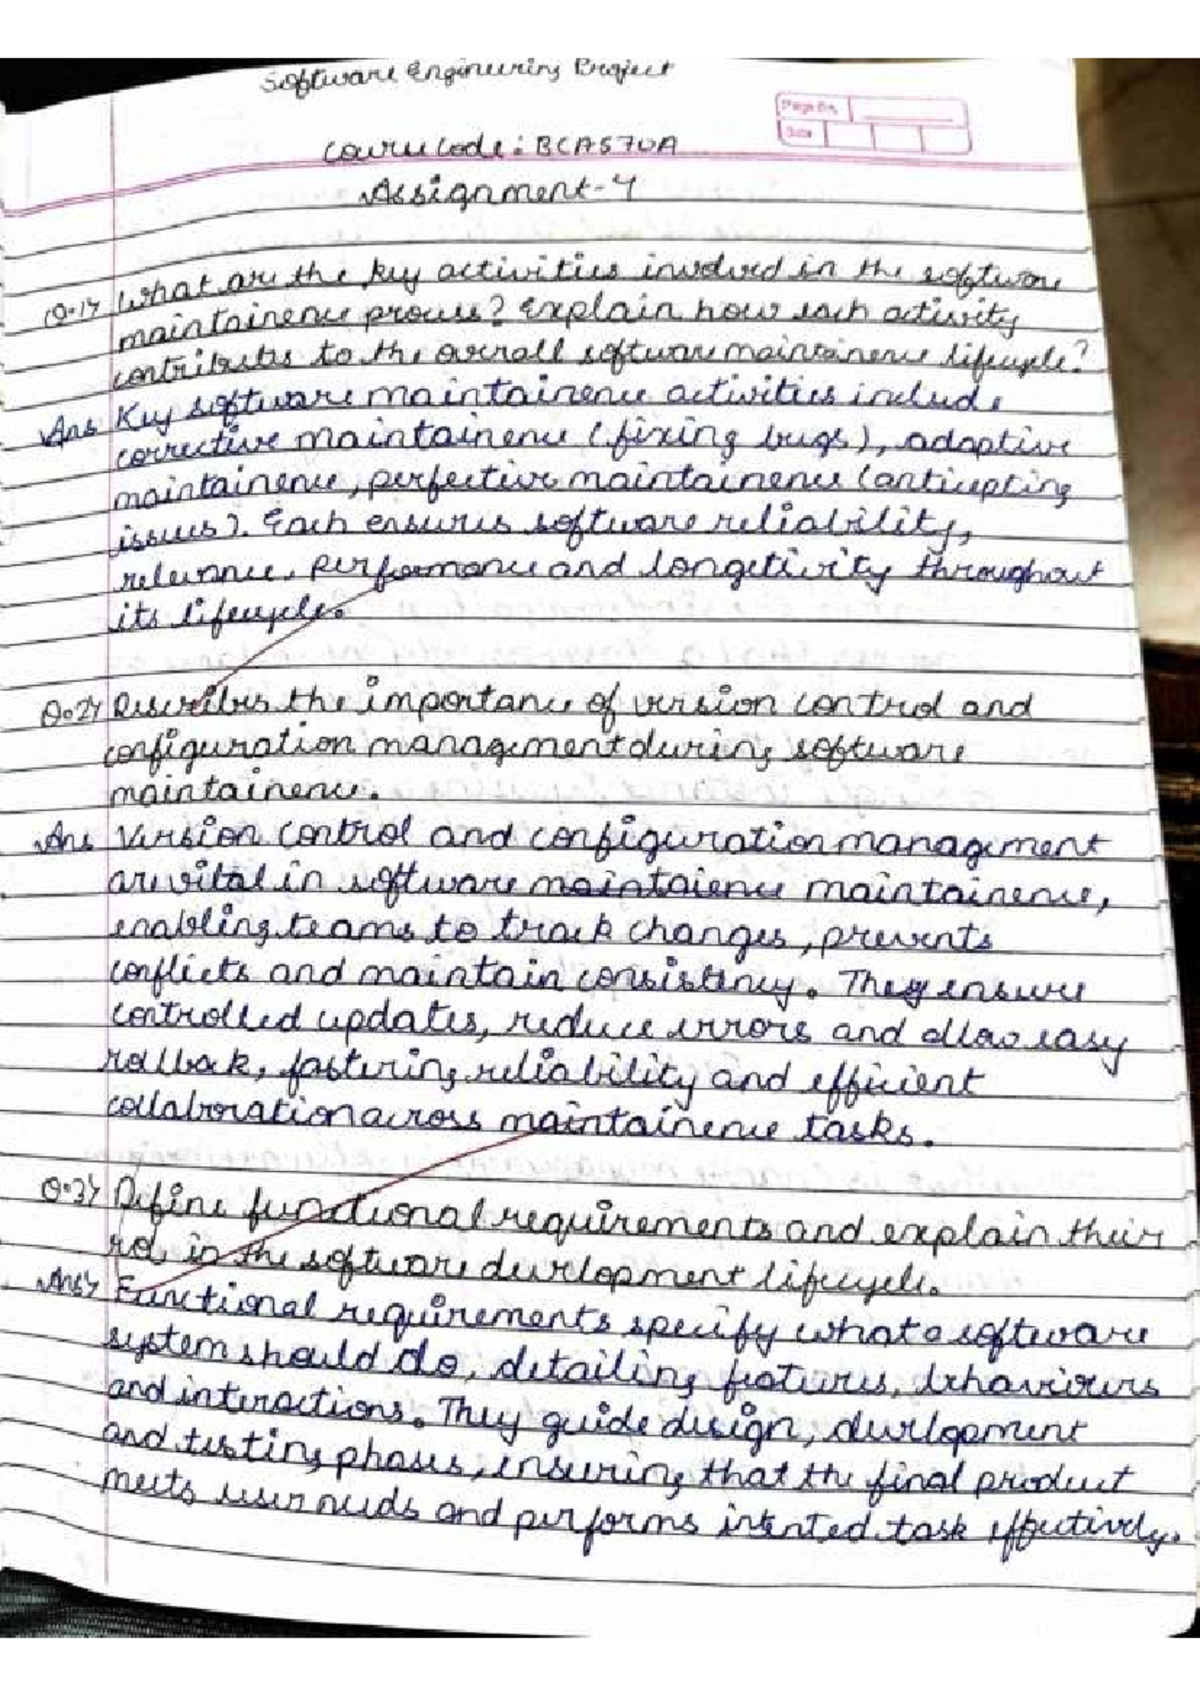 Software Engineering Project
Page No.
Date
Course Code: BCA570A
Assignment-4
Q.1> What are the key activities involved in the software
maintainence process? Explain how each activity
contributes to the overall software maintainence lifecycle?
Ans Key software maintainence activities include
corrective maintainence (fixing bugs), adaptive
maintainence, perfective maintainence (anticepting
issues). Each ensures software reliability,
relevance, performance and longetivity throughout
its lifecycle.
Q.2> Describes the importance of version control and
configuration management during software
maintainence.
Ans Version control and configuration management
are vital in software maintaience maintainence,
enabling teams to track changes, prevents
conflicts and maintain consistency. They ensure
controlled updates, reduce errors and allow easy
rollback, fastering reliability and efficient
collaboration across maintainence tasks.
Q.3> Define functional requirements and explain their
role in the software development lifecycle.
Ans> Functional requirements specify what a software
system should do, detailing features, behaviours
and interactions. They guide design, development
and testing phases, ensuring that the final product
meets user needs and performs intented task effectively.